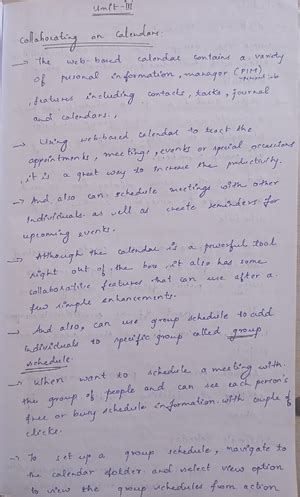 Unit-III
Collaborating on Calendars
→ The web-based calendar contains a variety
of personal information, manager (PIM)
, features including contacts, tasks, journal
and calendars.,
→ Using web-based calendar to tract the
appointments, meetings, events or special occassions
, it is a great way to increase the productivity.
→ And also can schedule meetings with other
individuals as well as create reminders for
upcoming events.
→ Although the calendar is a powerful tool
right out of the box, it also has some
collaborative features that can use after a
few simple enhancements.
→ And also, can use group schedule to add
individuals to specific group called group
schedule.
→ When want to schedule a meeting with
the group of people and can see each person's
free or busy schedule information with couple of
clicks.
→ To set up a group schedule, navigate to
the calendar folder and select view option
to view the group schedules from action